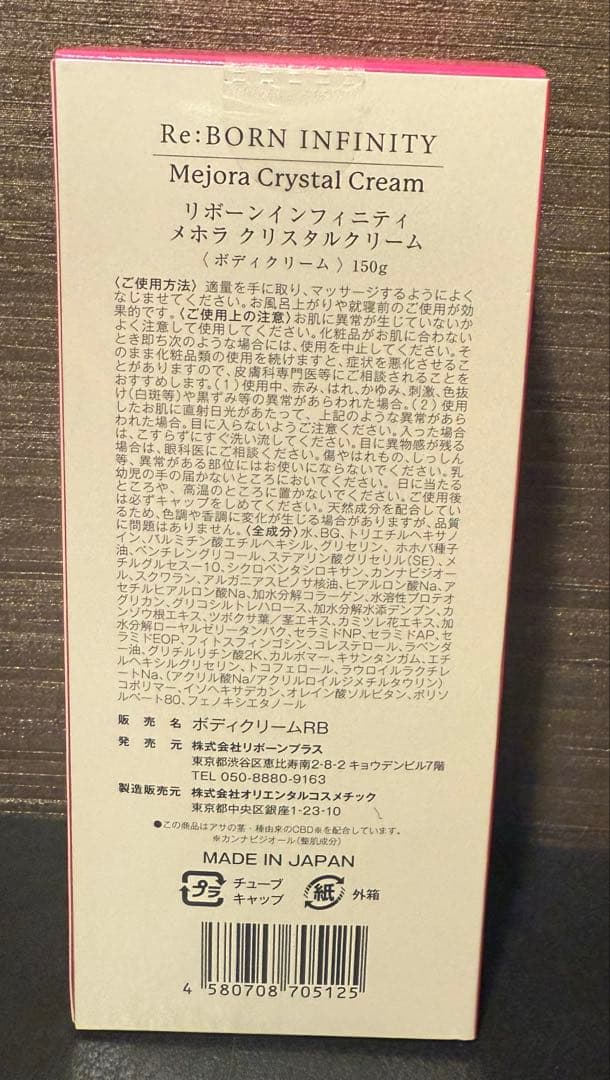 Re:BORN INFINITY
Mejora Crystal Cream
リボーンインフィニティ
メホラ クリスタルクリーム
〈 ボディクリーム 〉 150g
〈ご使用方法〉 適量を手に取り、マッサージするようによく
なじませてください。お風呂上がりや就寝前のご使用が効
果的です。〈ご使用上の注意〉お肌に異常が生じていないか
よく注意して使用してください。化粧品がお肌に合わない
とき即ち次のような場合には、使用を中止してください。そ
のまま化粧品類の使用を続けますと、症状を悪化させるこ
とがありますので、皮膚科専門医等にご相談されることを
おすすめします。(1)使用中、赤み、はれ、かゆみ、刺激、色抜
け(白斑等)や黒ずみ等の異常があらわれた場合。(2) 使用
したお肌に直射日光があたって、上記のような異常があら
われた場合。目に入らないようご注意ください。入った場合
は、こすらずにすぐ洗い流してください。目に異物感が残る
場合は、眼科医にご相談ください。傷やはれもの、しっしん
等、異常がある部位にはお使いにならないでください。乳
幼児の手の届かないところにおいてください。 日に当たる
ところや、高温のところに置かないでください。ご使用後
は必ずキャップをしめてください。天然成分を配合してい
るため、色調や香調に変化が生じる場合がありますが、品質
に問題はありません。〈全成分〉水、BG、トリエチルヘキサノ
イン、パルミチン酸エチルヘキシル、グリセリン、ホホバ種子
油、ペンチレングリコール、ステアリン酸グリセリル(SE)、メ
チルグルセス-10、シクロペンタシロキサン、カンナビジオー
ル、スクワラン、アルガニアスピノサ核油、ヒアルロン酸Na、ア
セチルヒアルロン酸Na、加水分解コラーゲン、水溶性プロテオ
グリカン、グリコシルトレハロース、加水分解水添デンプン、カ
ンゾウ根エキス、ツボクサ葉/茎エキス、カミツレ花エキス、加
水分解ローヤルゼリータンパク、セラミドNP、セラミドAP、セ
ラミドEOP、フィトスフィンゴシン、コレステロール、ラベンダ
ー油、グリチルリチン酸2K、カルボマー、キサンタンガム、エチ
ルヘキシルグリセリン、トコフェロール、ラウロイルラクチレ
ートNa、(アクリル酸Na/アクリロイルジメチルタウリン)
コポリマー、イソヘキサデカン、オレイン酸ソルビタン、ポリソ
ルベート80、フェノキシエタノール
販 売 名 ボディクリームRB
発 売 元 株式会社リボーンプラス
東京都渋谷区恵比寿南2-8-2 キョウデンビル7階
TEL 050-8880-9163
製造販売元 株式会社オリエンタルコスメチック
東京都中央区銀座1-23-10
●この商品はアサの茎・種由来のCBD※を配合しています。
※カンナビジオール(整肌成分)
MADE IN JAPAN
プラ チューブ
キャップ
紙 外箱
4 580708 705125